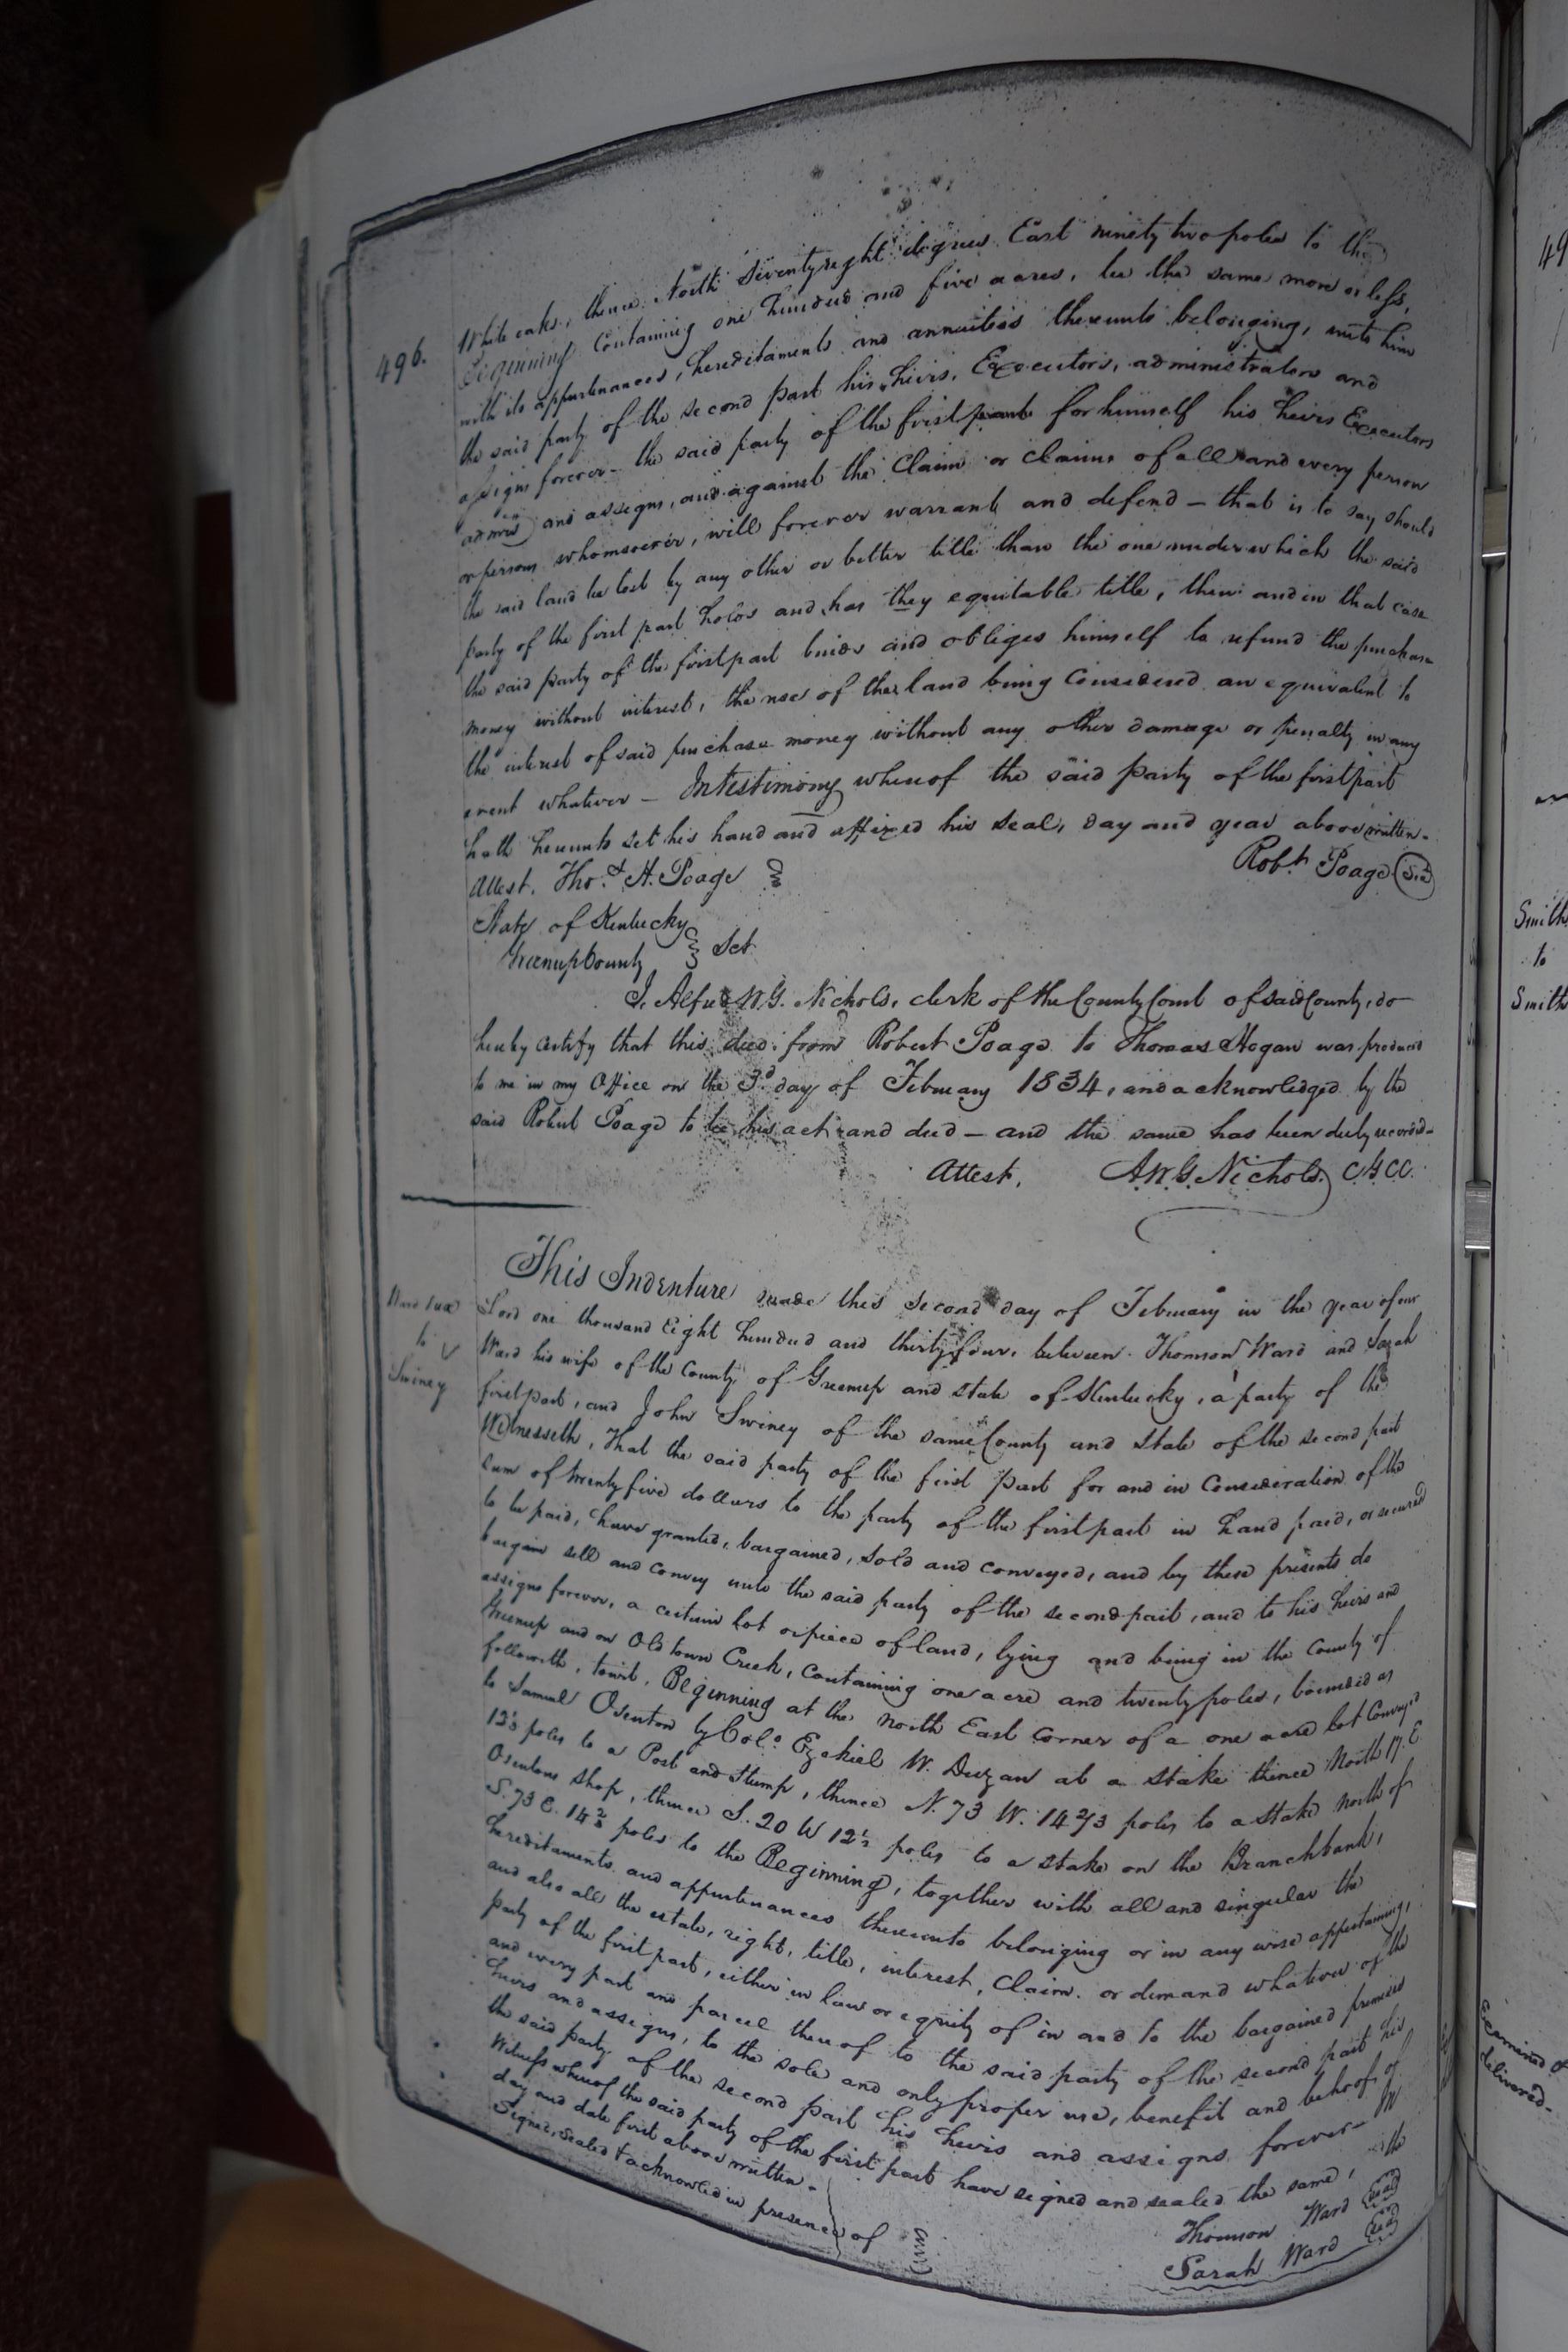 496.
White oaks, thence North Seventy eight degrees East ninety two poles to the
Beginning Containing one hundred and five acres, be the same more or less,
with its appurtenances, hereditaments and annuities thereunto belonging, unto him
the said party of the second part his heirs, Executors, administrators and
assigns forever - the said party of the first part for himself his heirs Executors
admrs and assigns, and against the Claim or claims of all and every person
or persons whomsoever, will forever warrant and defend - that is to say should
the said land be lost by any other or better title than the one under which the said
party of the first part holds and has they equitable title, then and in that case
the said party of the first part binds and obliges himself to refund the purchase
money without interest, the use of the land being Considered an equivalent to
the interest of said purchase money without any other damage or penalty in any
event whatever - In testimony whereof the said party of the first part
hath hereunto set his hand and affixed his seal, day and year above written.
Attest. Thos. H. Poage
Robt Poage
State of Kentucky
Greenup County Sct
I, Alfred W. G. Nichols, clerk of the County Court of said County, do
hereby certify that this deed from Robert Poage to Thomas Hogan was produced
to me in my Office on the 3d day of February 1834, and acknowledged by the
said Robert Poage to be his act and deed - and the same has been duly recorded -
Attest, A.W.G. Nichols. C G C C.
Ward &ux
to
Swiney
This Indenture made this second day of February in the year of our
Lord one thousand Eight hundred and thirty four, between Thomson Ward and Sarah
Ward his wife of the County of Greenup and state of Kentucky, a party of the
first part, and John Swiney of the same County and state of the second part
Witnesseth, That the said party of the first part for and in Consideration of the
sum of twenty five dollars to the party of the first part in hand paid, or secured
to be paid, have granted, bargained, sold and conveyed, and by these presents do
bargain sell and convey unto the said party of the second part, and to his heirs and
assigns forever, a certain lot or piece of land, lying and being in the County of
Greenup and on Old town Creek, containing one acre and twenty poles, bounded as
followeth, towit, Beginning at the North East corner of a one acre lot Conveyed
to Samuel Osenton by Colo. Ezekiel W. Duzan at a stake thence North 17. E
12½ poles to a Post and Stump, thence N. 73 W. 14 2/3 poles to a stake north of
Osentons shop, thence S. 20 W 12½ poles to a stake on the Branch bank,
S. 73 E. 14 2/3 poles to the Beginning, together with all and singular the
hereditaments and appurtenances thereunto belonging or in any wise appertaining,
and also all the estate, right, title, interest, Claim or demand whatever of the
party of the first part, either in law or equity of in and to the bargained premises
and every part and parcel thereof to the said party of the second part his
heirs and assigns, to the sole and only proper use, benefit and behoof of
the said party of the second part his heirs and assigns forever - In
Witness whereof the said party of the first part have signed and sealed the same, the
day and date first above written -
Signed, sealed & acknowled in presence of
Thomson Ward seal
Sarah Ward seal
49
Smith
to
Smith
Examined
delivered.